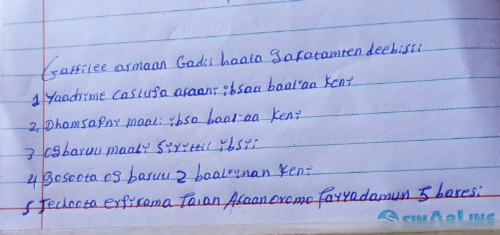 Gaffilee armaan Gadii haala Gafatamten deebisii
1 Yaadrime casluga afaani ibsaa baal'aa Keni
2, Dhamsagni maali ibsa baal'aa Keni
3 og baruu maali Sirittii ibsii
4 Gosoota og baruu 2 baal'inan Keni
5 Jechoota erfirama faian Afaan oromo fayyadamun 5 baresi
SINAALINE